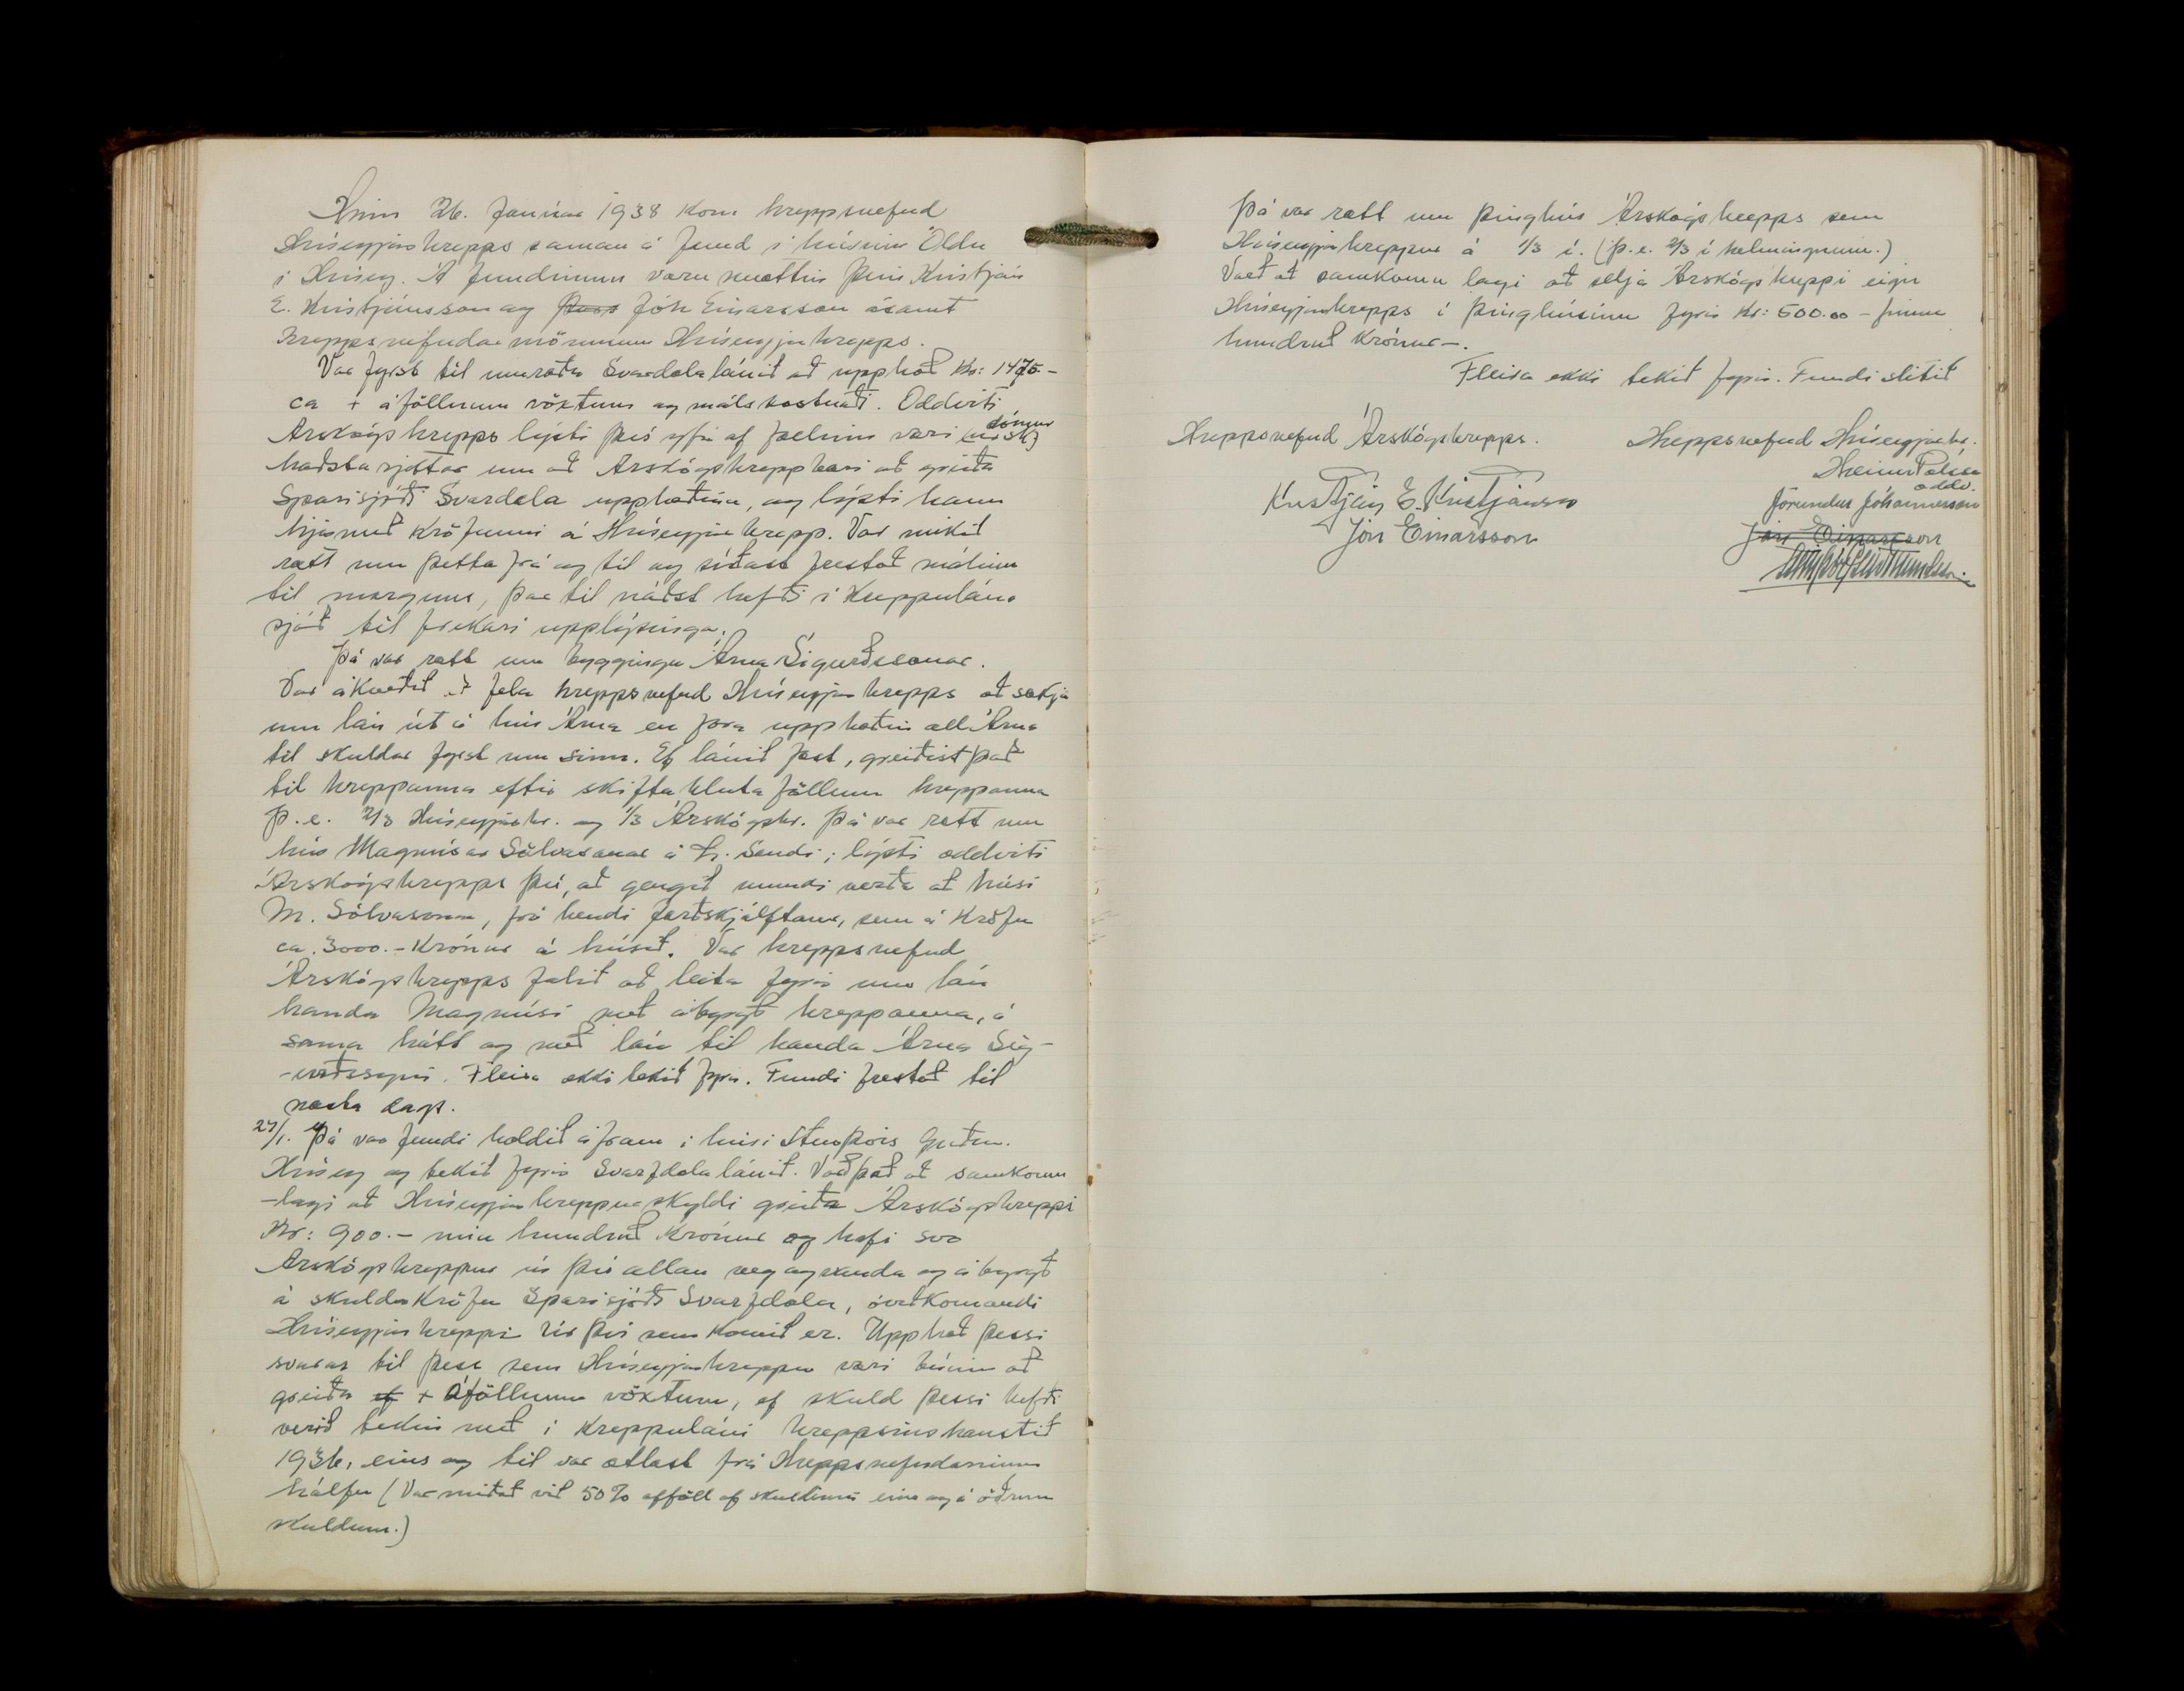 Hinn 26. Janúar 1938 kom hreppsnefnd
Hríseyjarhrepps saman á fund í húsinu Öldu
í Hrísey. Á fundinum voru mættir þeir Kristján
E. Kristjánsson og Jón Einarsson ásamt
hreppsnefndarmönnum Hríseyjarhrepps.
Var fyrst til umræðu Svarfdælalánið að upphæð Kr: 1475.-
ca + áföllnum vöxtum og málskostnaði. Oddviti
Árskógshrepps lýsti því yfir að fallinn væri dómur
hæstaréttar um að Árskógshreppi bæri að greiða
Sparisjóði Svarfdæla upphæðina, og lýsti hann
hjermeð kröfunni á Hríseyjarhrepp. Var mikið
rætt um þetta frá og til og síðast frestað málinu
til morguns, þar til náðst hefði í Kreppulána
sjóð til frekari upplýsinga.
Þá var rætt um byggingu Árna Sigurðssonar.
Var ákveðið að fela hreppsnefnd Hríseyjarhrepps að sækja
um lán út á hús Árna en færa upphæðina all Árna
til skuldar fyrst um sinn. Ef lánið fæst, greiðist það
til hreppanna eftir skiftahlutaföllum hreppanna
þ.e. 2/3 Hríseyjarhr. og 1/3 Árskógshr. Þá var rætt um
hús Magnúsar Sölvasonar á L. Sandi; lýsti oddviti
Árskógshrepps því, að gengið mundi verða að húsi
M. Sölvasonar, frá hendi jarðskjálftans, sem á kröfu
ca. 3000.- Krónur á húsið. Var hreppsnefnd
Árskógshrepps falið að leita fyrir um lán
handa Magnúsi með ábyrgð hreppanna, á
sama hátt og með lán til handa Árna Sig-
-urðssyni. Fleira ekki tekið fyrir. Fundi frestað til
næsta dags.
27/1. Þá var fundi haldið áfram í húsi Steinþórs Guðm.
Hrísey og tekið fyrir Svarfdælalánið. Varð það að samkomu
-lagi að Hríseyjarhreppur skyldi greiða Árskógshreppi
Kr: 900.- níu hundruð Krónur og hafi svo
Árskógshreppur úr því allan veg og vanda og ábyrgð
á skuldakröfu Sparisjóðs Svarfdæla, óviðkomandi
Hríseyjarhreppi úr því sem komið er. Upphæð þessi
svarar til þess sem Hríseyjarhreppur væri búinn að
greiða + áföllnum vöxtum, ef skuld þessi hefði
verið tekin með í kreppuláni hreppsins haustið
1936, eins og til var ætlast frá Hreppsnefndarinnar
hálfu (Var miðað við 50% afföll af skuldinni eins og á öðrum
skuldum.)
Þá var rætt um þinghús Árskógshrepps sem
Hríseyjarhreppur á 1/3 í. (þ.e. 2/3 í helmingnum.)
Varð að samkomulagi að selja Árskógshreppi eign
Hríseyjarhrepps í þinghúsinu fyrir Kr: 500.00 - fimm
hundruð Krónur-.
Fleira ekki tekið fyrir. Fundi slitið
Hreppsnefnd Árskógshrepps.
Kristján E. Kristjánsson
Jón Einarsson
Hreppsnefnd Hríseyjarhr.
Hreinn Pálsson
oddv.
Jörundur Jóhannesson
Jón Einarsson